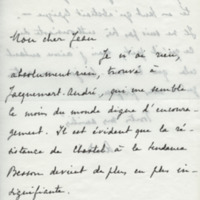 Mon cher Jean
Je n'ai rien,
absolument rien, trouvé à
Jacquemart-André, qui me semble
le moins du monde digne d'encoura-
gement. Il est évident que la ré-
sistance de Chastel à la tendance
Besson devient de plus en plus in-
signifiante.